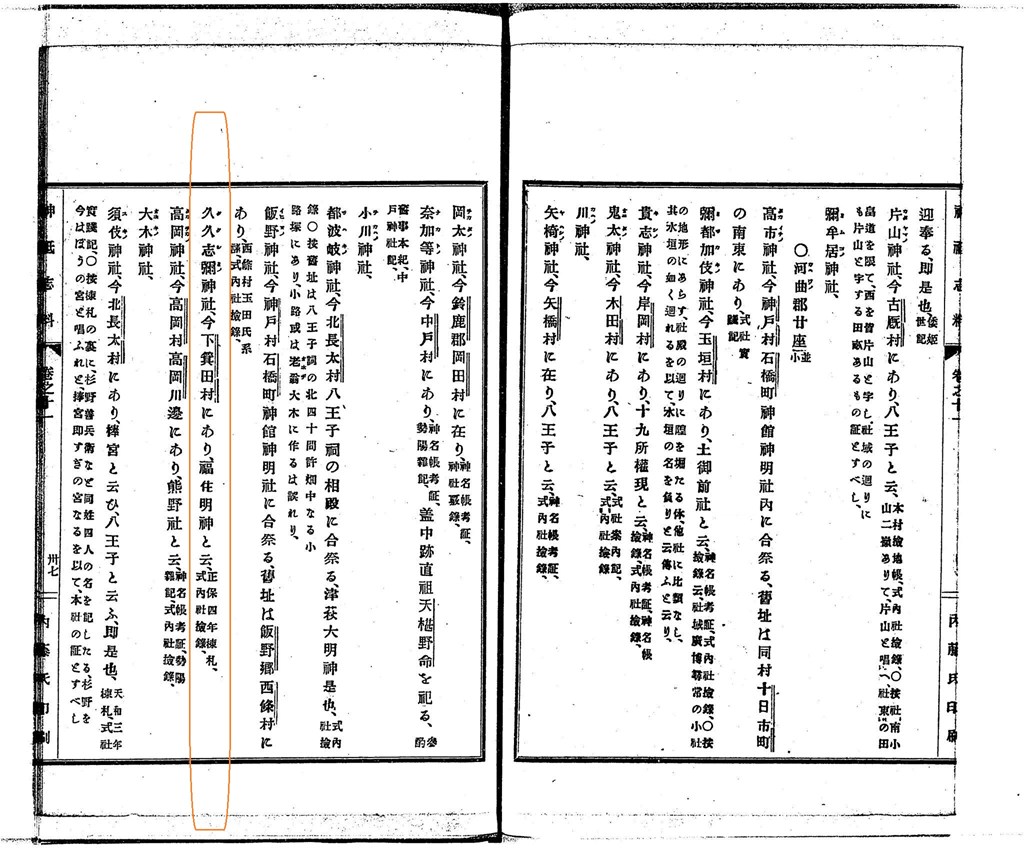 迎奉る、即是也、倭姫世記
片山神社、今古厩村にあり、八王子と云、木村檢地帳、式內社檢錄、〇按社、南小山二嶽ありて、片山と唱へ、社東の田
畠道を限て、西を皆片山と字し社域の迴りに
も片山と字する田畝あるもの証とすべし、
彌牟居神社、
〇河曲郡廿座並小
高市神社、今神戸村石橋町神館神明社內に合祭る、舊址は同村十日市町
の南東にあり、式社實
彌都加伎神社、今玉垣村にあり、土御前社と云、神名帳考証、式內社檢錄、〇按檢錄云、社域廣博尋常の小社
の地形にあらす、社殿の迴りに隍を堀たる体、他社に比類なし、
其水垣の如く迴れるを以て、水垣の名を負りと云傳ふと云り
貴志神社、今岸岡村にあり、十九所權現と云、神名帳考証、神名帳檢錄、式內社檢錄、
鬼太神社、今木田村にあり、八王子と云、式社案內記、式內社檢錄
川神社、
矢椅神社、今矢橋村に在り、八王子と云、神名帳考証、式內社檢錄、
岡太神社、今鈴鹿郡岡田村に在り、神名帳考証、神社覈錄、
奈加等神社、今中戸村にあり、神名帳考証、勢陽雜記、盖中跡直祖天椹野命を祀る、參酌
舊事本紀、中戸神社記、
小川神社、
都波岐神社、今北長太村八王子祠の相殿に合祭る、津荻大明神是也、式內社檢
錄〇按舊址は八王子祠の北四十間許畑中なる小
路塚にあり、小路或は老翁大木に作るは誤れり、
飯野神社、今神戸村石橋町神館神明社に合祭る、舊址は飯野鄕西條村に
あり、西條村玉田氏系譜、式內社檢錄、
久久志彌神社、今下箕田村にあり、福住明神と云、正保四年棟札、式內社檢錄、
高岡神社、今高岡村高岡川邊にあり、熊野社と云、神名帳考証、勢陽雜記、式內社檢錄、
大木神社、
須伎神社、今北長太村にあり、椊宮と云ひ、八王子と云ふ、即是也、天和三年棟札、式社
實記〇按棟札の裏に、杉野善兵衛など同姓四人の名を記したる、杉野を
今はぼうの宮と唱ふれと、椊宮即すぎの宮なるを以て、本社の証とすべし
神祇志料 卷之十一 卅七
內藤氏印刷